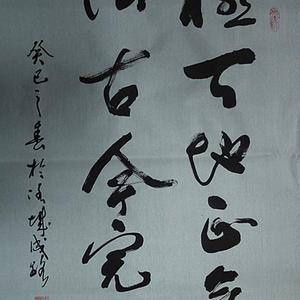 天地正氣
法古今完
癸巳之春於洛城